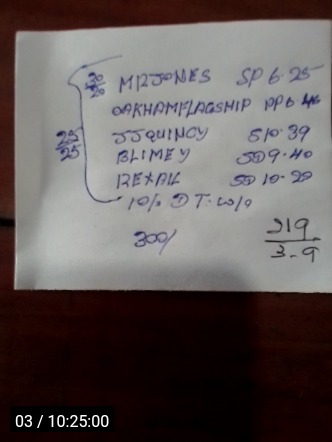 20/20 MRJONES SP 6.25
OAKHAMFLAGSHIP PP6.40
25/25 JJQUINCY S10.39
BLIMEY SD9.40
REXAL SD 10.20
10/0 DT. W/O
300/
219
3-9
03 / 10:25:00